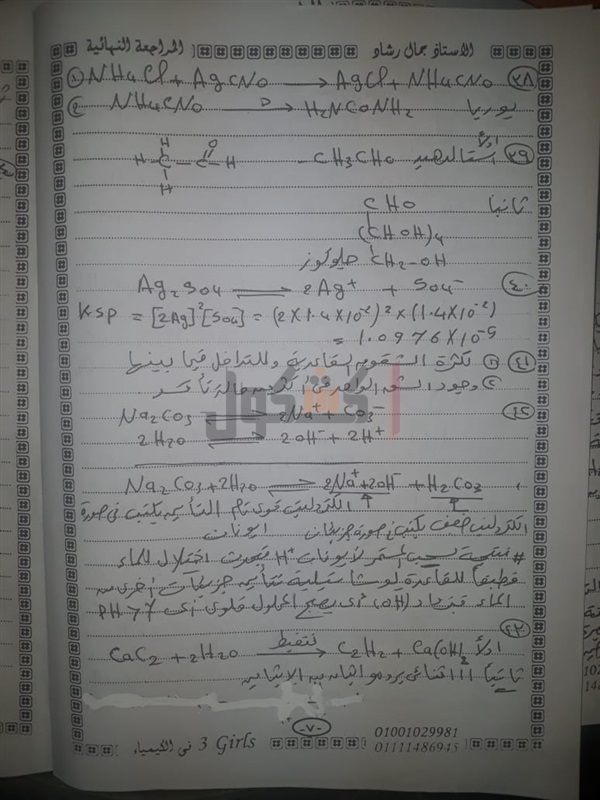 الاستاذ جمال رشاد المراجعة النهائية
٣٨ ① NH4Cl + AgCNO → AgCl + NH4CNO
② NH4CNO → H2NCONH2 يوريا
٣٩ أولاً أستالدهيد CH3CHO
H O
H C C H
H
ثانيا CHO
(CHOH)4
CH2-OH جلوكوز
٤٠ Ag2SO4 ⇌ 2Ag+ + SO4-
Ksp = [2Ag]²[SO4] = (2 X 1.4 X 10-2)² X (1.4 X 10-2)
= 1.0976 X 10-5
٤١ ① لكثرة الشقوق القاعدية وللتداخل فيما بينها
② وجود الشق الواحد فى أكثر من حالة تأكسد
كشكول
٤٢ Na2CO3 ⇌ 2Na+ + CO3-
2H2O ⇌ 2OH- + 2H+
Na2CO3 + 2H2O ⇌ 2Na+ + 2OH- + H2CO3
الكتروليت قوى تام التأين يكتب فى صورة
ايونات الكتروليت ضعيف يكتب فى صورة جزيئات
# نتيجة لسحب المستمر لأيونات H+ يحدث اختلال للماء
فطبقاً للقاعدة لوشاتيلية تتأين جزيئات اخرى من
الماء فتزداد (OH) أى يصبح المحلول قلوى أى PH>7
٤٣ اولاً CaC2 + 2H2O → تنقيط C2H2 + Ca(OH)2
ثانياً 1,1 ثنائى برومو ايثان من الايثاين
-٧- 3 Girls فى الكيمياء
01001029981
01111486945